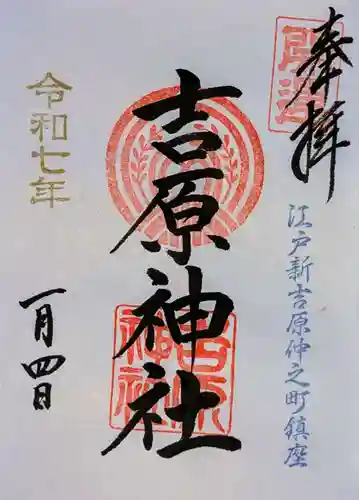 奉拝
江戸新吉原仲之町鎮座
開運
吉原神社
吉原神社
令和七年
一月四日